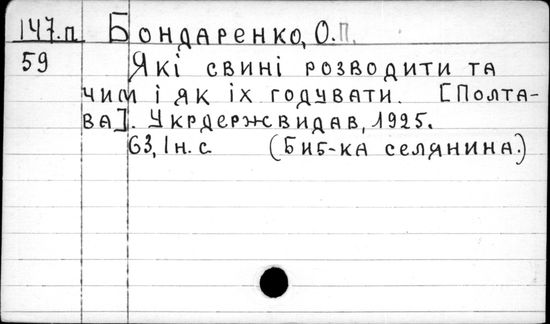 147.п Бондаренко, О.П.
59 Які свині розводити та
чим і як їх годувати. [Полта-
ва]. Укрдержвидав, 1925.
63, 1н. с. (Биб-ка селянина.)